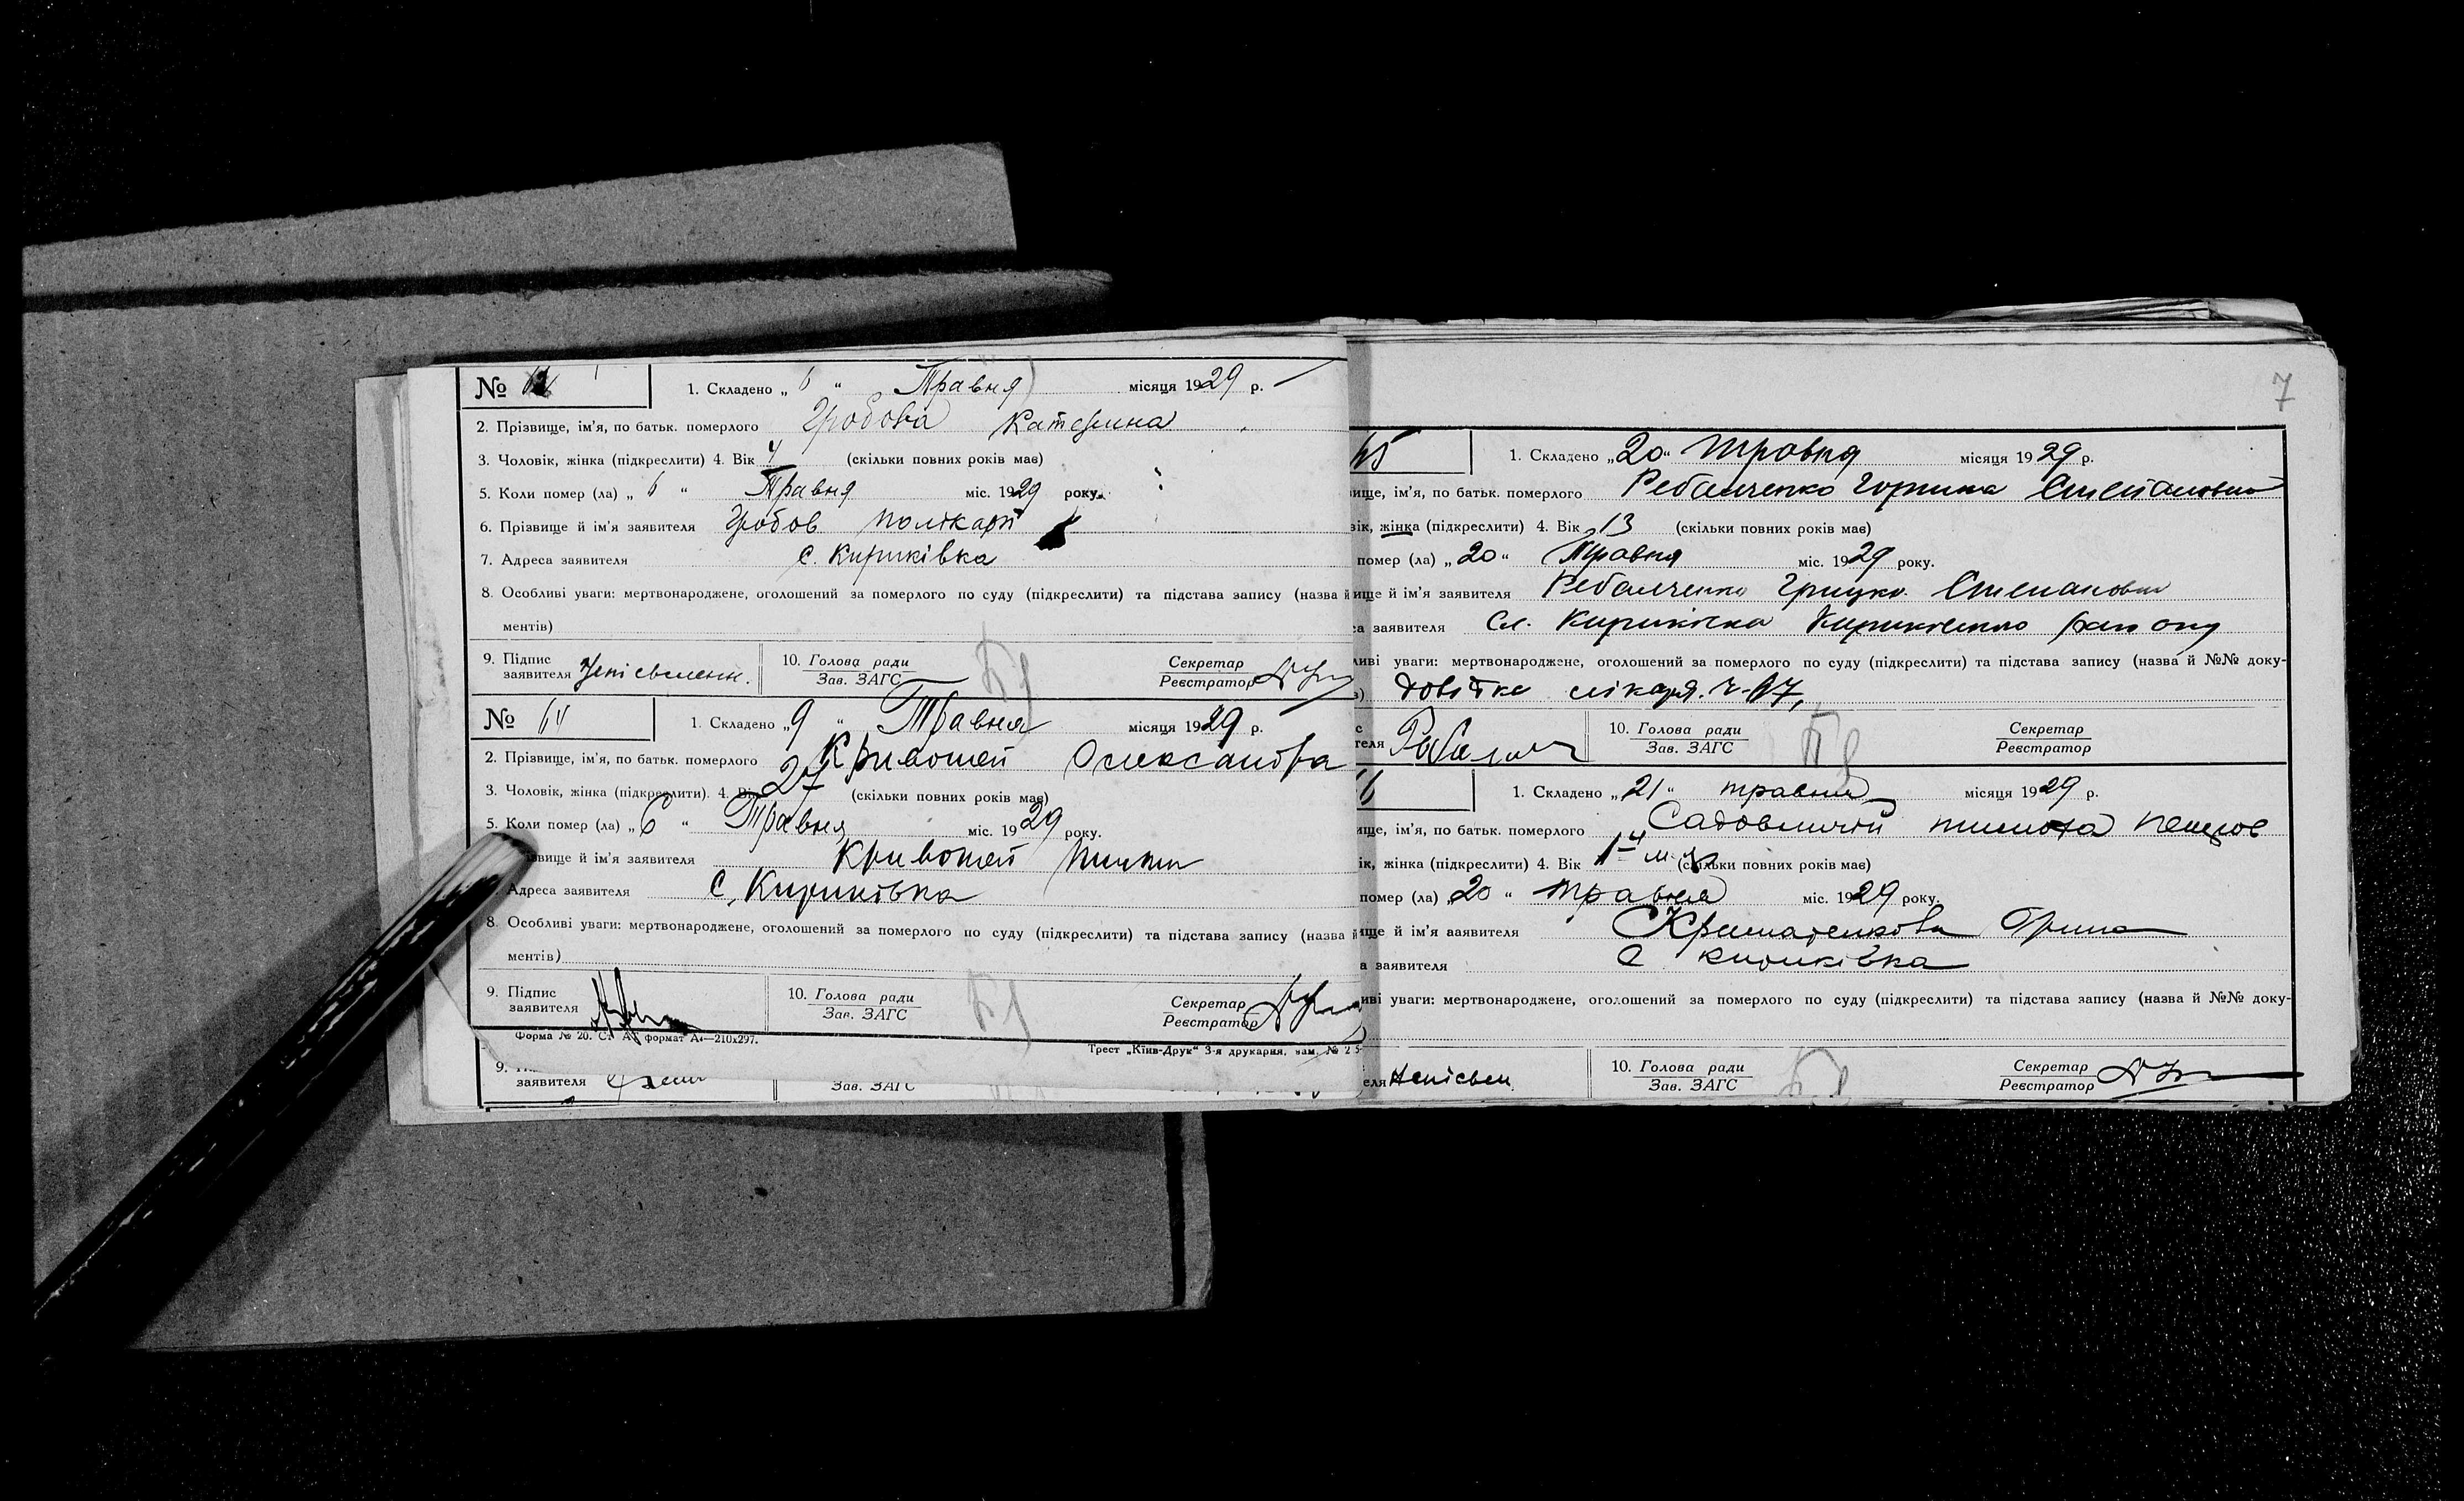 № 1. Складено „ 6 “ Травня місяця 1929 р.
2. Прізвище, ім'я, по батьк. померлого Гробова Катерина
3. Чоловік, жінка (підкреслити) 4. Вік 4 (скільки повних років має)
5. Коли помер (ла) „ 6 “ Травня міс. 1929 року.
6. Прізвище й ім'я заявителя Гробов Полікарп
7. Адреса заявителя с. Кириківка
8. Особливі уваги: мертвонароджене, оголошений за померлого по суду (підкреслити) та підстава запису (назва й
ментів)
9. Підпис заявителя 10. Голова ради Зав. ЗАГС Секретар Реєстратор
№ 64 1. Складено „ 9 “ Травня місяця 1929 р.
2. Прізвище, ім'я, по батьк. померлого Кривошей Олександра
3. Чоловік, жінка (підкреслити). 4. Вік 27 (скільки повних років має)
5. Коли помер (ла) „ 6 “ Травня міс. 1929 року.
звище й ім'я заявителя Кривошей
Адреса заявителя с. Кириківка
8. Особливі уваги: мертвонароджене, оголошений за померлого по суду (підкреслити) та підстава запису (назва й
ментів)
9. Підпис заявителя 10. Голова ради Зав. ЗАГС Секретар Реєстратор
Форма № 20. Ст. А, формат А4—210х297.
Трест „Київ-Друк“ 3-я друкарня, зам. № 25
9.
заявителя Зав. ЗАГС
7
65 1. Складено „ 20 “ Травня місяця 1929 р.
вище, ім'я, по батьк. померлого Ребенченко Степановна
вік, жінка (підкреслити) 4. Вік 13 (скільки повних років має)
помер (ла) „ 20 “ Травня міс. 1929 року.
ище й ім'я заявителя Грицко Степанович
са заявителя Сл. Кириківка району
ливі уваги: мертвонароджене, оголошений за померлого по суду (підкреслити) та підстава запису (назва й №№ доку-
в) довідка лікаря. ч-67,
с
теля 10. Голова ради Зав. ЗАГС Секретар Реєстратор
6 1. Складено „ 21 “ травня місяця 1929 р.
ище, ім'я, по батьк. померлого Садовничій
ік, жінка (підкреслити) 4. Вік (скільки повних років має)
помер (ла) „ 20 “ травня міс. 1929 року.
ище й ім'я заявителя
а заявителя с Кириківка
иві уваги: мертвонароджене, оголошений за померлого по суду (підкреслити) та підстава запису (назва й №№ доку-
еля 10. Голова ради Зав. ЗАГС Секретар Реєстратор